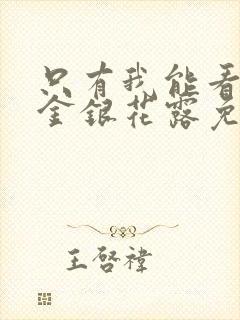 只有我能看
金銀花露免
王啓禕